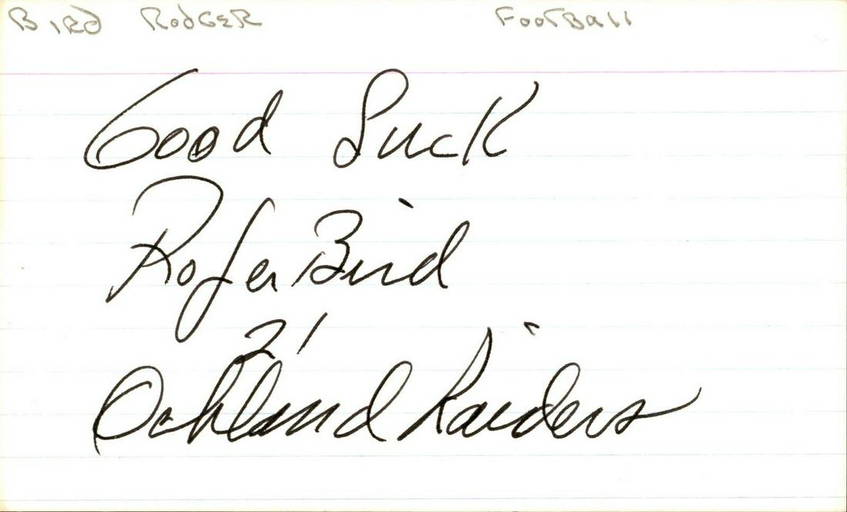 BIRD RODGER FOOTBALL
Good Luck
Roger Bird
21
Oakland Raiders